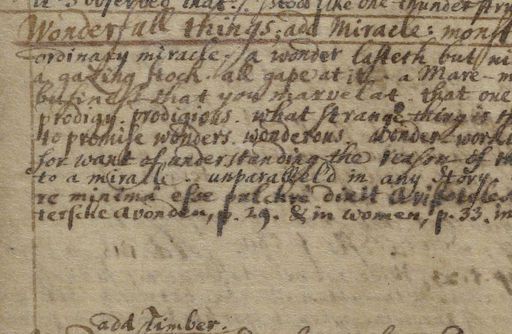 it observed that: / stood like one thunder stru
Wonderfull things; add Miracle: monst
ordinary miracle; a wonder lasteth but ni
a gazing stock. all gape at it. a Mare-m
business that you marvel at. that one
prodigy. prodigious. what strange thing is th
to promise wonders. wonderous. wonder-work
for want of understanding the reason of th
to a miracle. unparalleld in any story.
re minima esse pulchre dixit Aristoteles
tersche Avonden, p. 29. & in women, p. 33. in
add Timber.